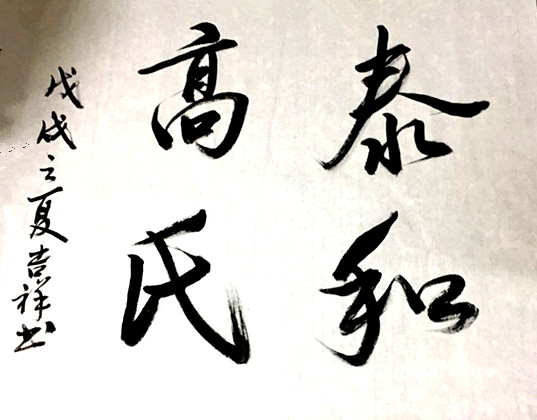 泰和
高氏
戊戌之夏吉祥书